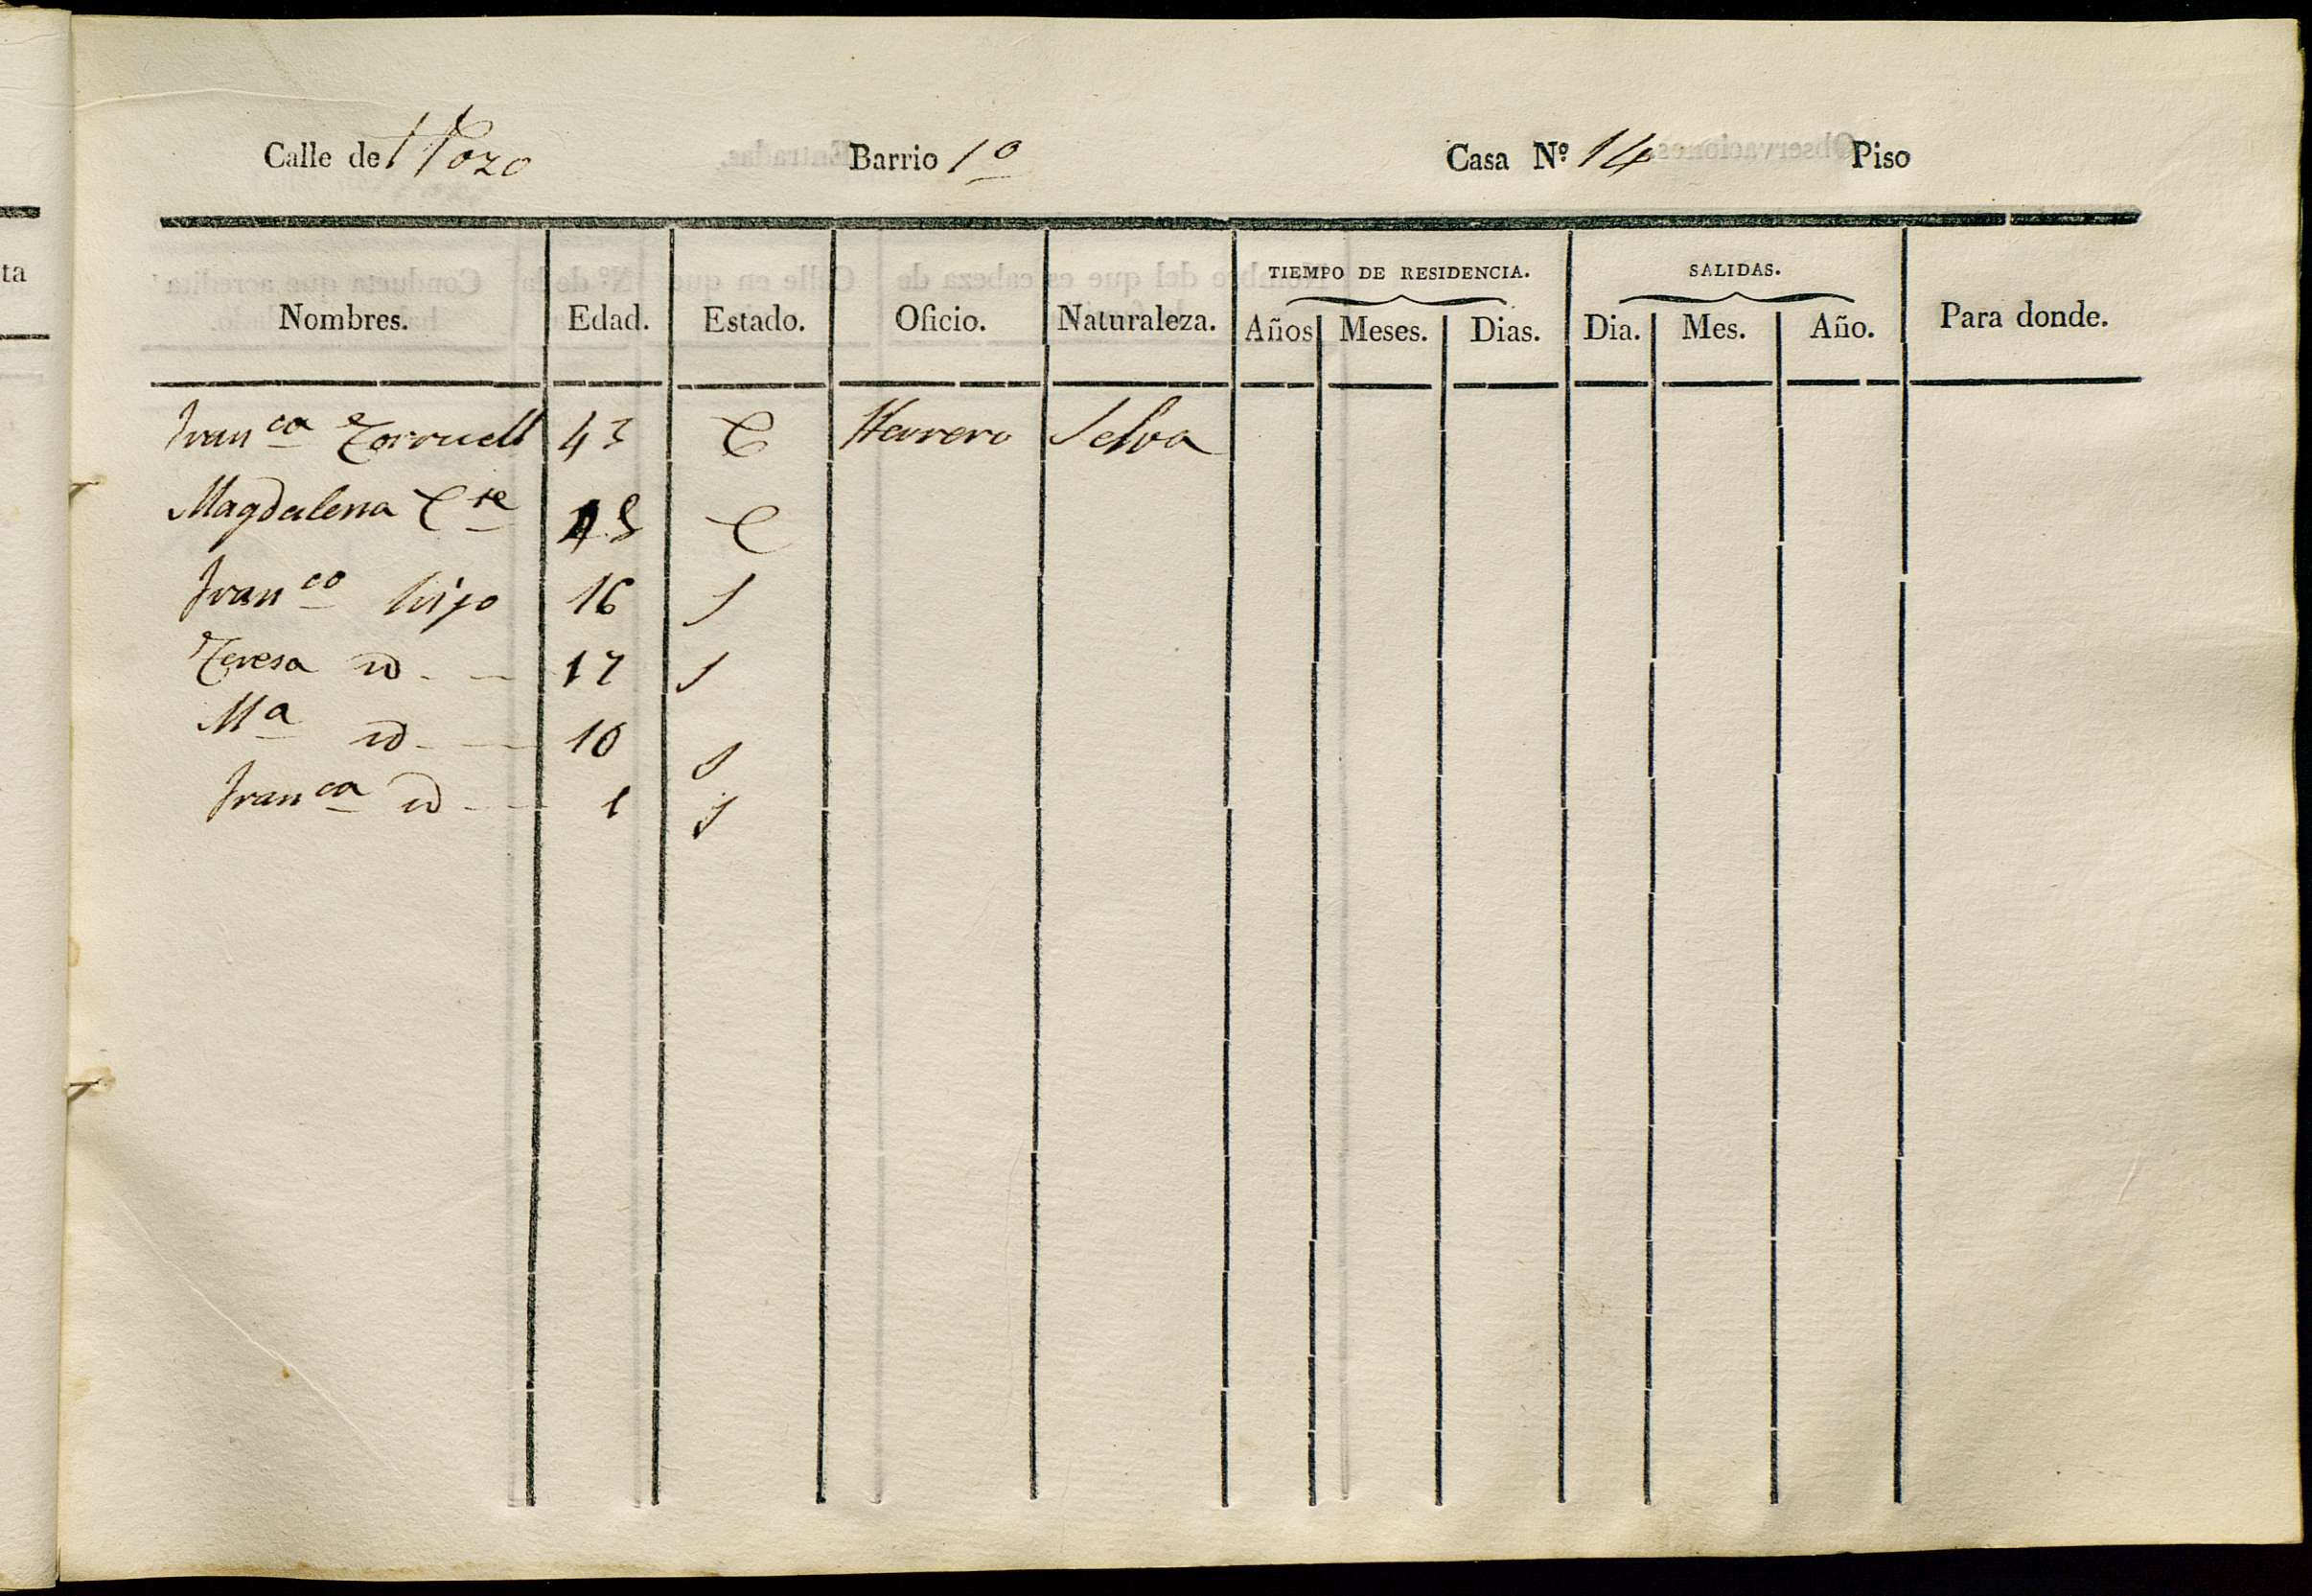 Calle del Pozo Barrio 1º Casa Nº 14 Piso
ta
TIEMPO DE RESIDENCIA. SALIDAS.
Nombres. Edad. Estado. Oficio. Naturaleza. Años Meses. Dias. Dia. Mes. Año. Para donde.
Franca Torruell 43 C Herrero Selva
Magdalena Cte C
Franco hijo 16 S
Teresa id 17 S
Ma id 10 S
Franca id 1 S